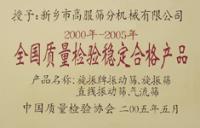 授予：新乡市高服筛分机械有限公司
2000年-2005年
全国质量检验稳定合格产品
产品名称：旋振牌振动筛、旋振筛
直线振动筛、气流筛
中国质量检验协会 二00五年五月